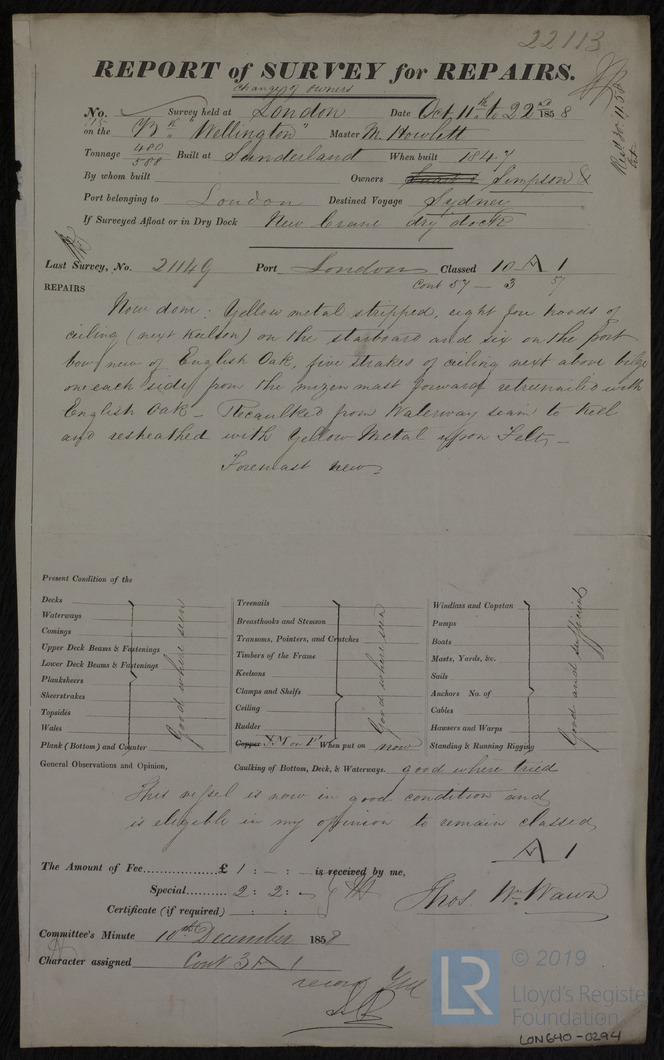 22113
REPORT of SURVEY for REPAIRS.
change of owners
No. Survey held at London Date Oct 11th to 22nd 1858
on the "Wellington" Master M. Howlett
Tonnage 480/588 Built at Sunderland When built 1847
By whom built Owners Simpson &
Port belonging to London Destined Voyage Sydney
If Surveyed Afloat or in Dry Dock New Crane dry dock
Last Survey, No. 21149 Port London Classed 10 A 1
Cont 57 — 3 57
REPAIRS
Now done: Yellow metal stripped, eight fore hoods of
ceiling (next Keelson) on the starboard and six on the port
bow new of English Oak, five strakes of ceiling next above bilge
on each side from the mizen mast forward retreenailed with
English Oak – Recaulked from Waterway seam to Keel
and resheathed with Yellow Metal upon Felt –
Foremast new
Present Condition of the
Decks
Waterways
Comings
Upper Deck Beams & Fastenings
Lower Deck Beams & Fastenings
Planksheers
Sheerstrakes
Topsides
Wales
Plank (Bottom) and Counter
Good where seen
Treenails
Breasthooks and Stemson
Transoms, Pointers, and Crutches
Timbers of the Frame
Keelsons
Clamps and Shelfs
Ceiling
Rudder
Copper Y.M on F. When put on now
Good where seen
Windlass and Capstan
Pumps
Boats
Masts, Yards, &c.
Sails
Anchors No. of
Cables
Hawsers and Warps
Standing & Running Rigging
Good and sufficient
General Observations and Opinion,
Caulking of Bottom, Deck, & Waterways. good where tried
This vessel is now in good condition and
is eligible in my opinion to remain classed
A 1
The Amount of Fee......£ 1 : – : – is received by me,
Special......... 2 : 2 : –
Certificate (if required) : :
Thos Wm Wawn
Committee's Minute 10th December 1858
Character assigned Cont 3 A 1
© 2019
LR
Lloyd's Register
Foundation
LON640-0294